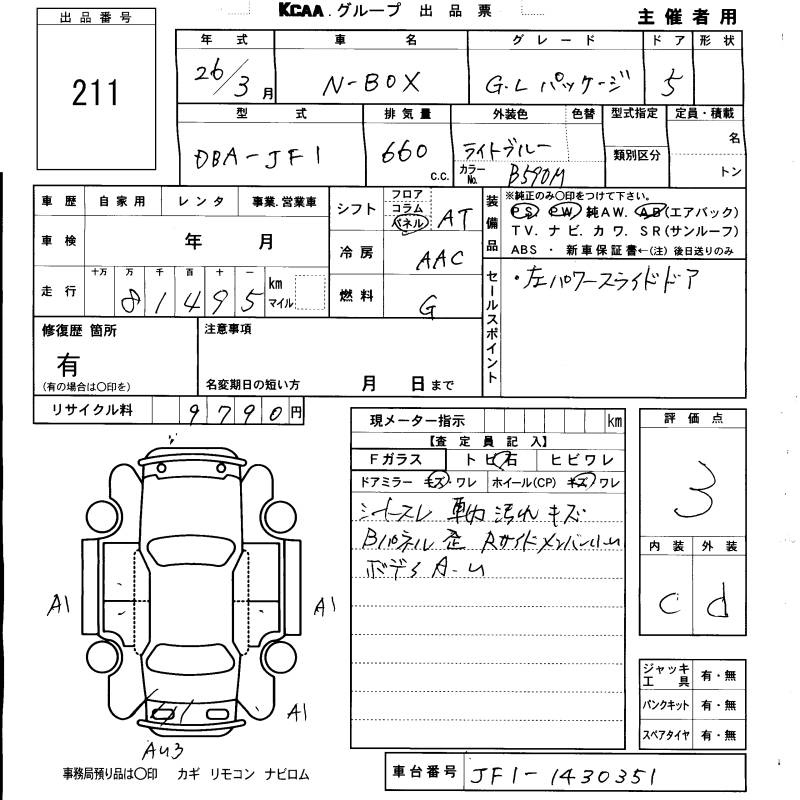 KCAA.グループ 出品票
主催者用
出品番号
211
年式 車名 グレード ドア 形状
26/3月 N-BOX G.L パッケージ 5
型式 排気量 外装色 色替 型式指定 定員・積載
DBA-JF1 660 c.c. ライトブルー 類別区分 名
カラーNo. B590M トン
車歴 自家用 レンタ 事業.営業車
車検 年 月
走行 十万 万 千 百 十 一
81495 km マイル
シフト フロア コラム パネル AT
冷房 AAC
燃料 G
装備品 ※純正のみ〇印をつけて下さい。
PS PW 純AW. AB(エアバック)
TV. ナビ. カワ. SR(サンルーフ)
ABS ・ 新車保証書←(注) 後日送りのみ
セールスポイント
・左パワースライドドア
修復歴 箇所
有
(有の場合は〇印を)
注意事項
名変期日の短い方 月 日まで
リサイクル料 9790円
現メーター指示 km
【査定員記入】
Fガラス トビ石 ヒビワレ
ドアミラー キズ・ワレ ホイール(CP) キズ・ワレ
シートスレ 車内 汚れ キズ
Bパネル 歪 Rサイドメンバー
ボディ A-U
評価点
3
内装 外装
C d
ジャッキ工具 有・無
パンクキット 有・無
スペアタイヤ 有・無
A1
A1
A1
AU3
事務局預り品は〇印 カギ リモコン ナビロム
車台番号 JF1-1430351